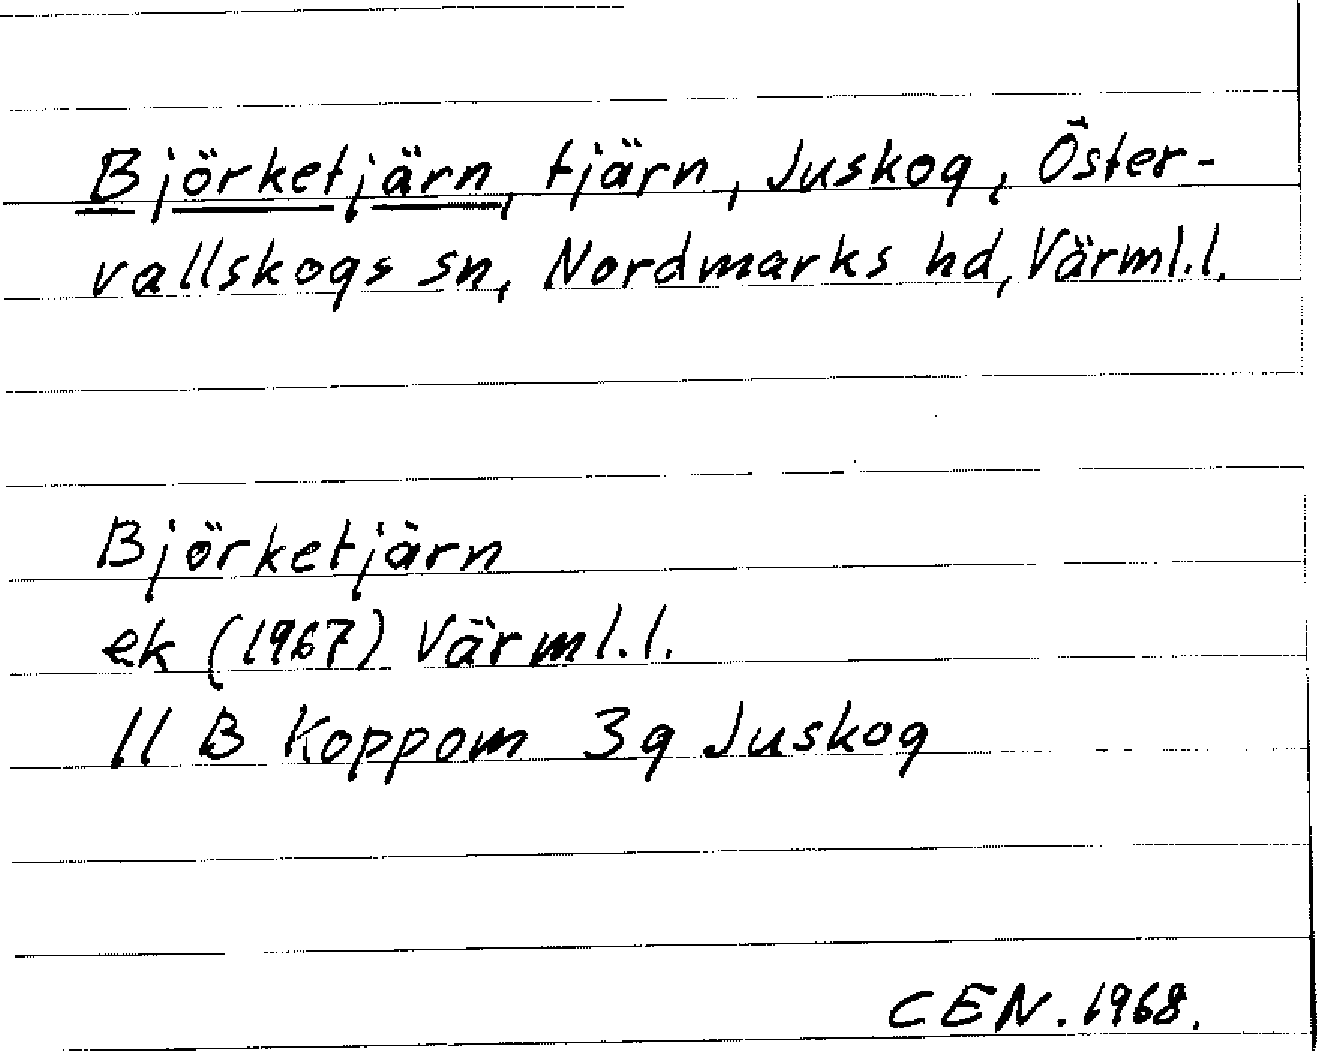 Björketjärn, tjärn, Juskog, Öster-
vallskogs sn, Nordmarks hd, Värml.l.
Björketjärn
ek (1967) Värml.l.
11 B Koppom 3g Juskog
CEN. 1968.